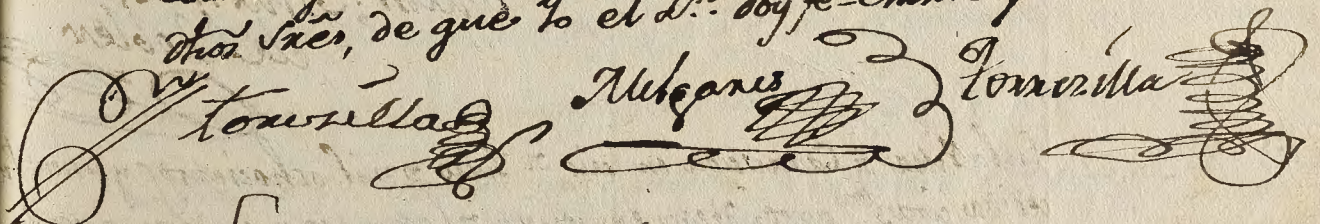 dhos Sres, de que Yo el S.no doy fe
Torrezilla Melgares Torrezilla